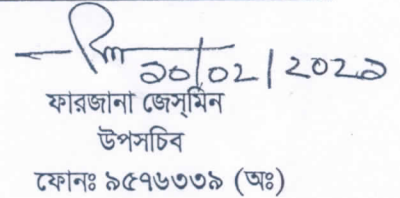 ১০/০২/২০২১
ফারজানা জেস্‌মিন
উপসচিব
ফোনঃ ৯৫৭৬৩৩৯ (অঃ)